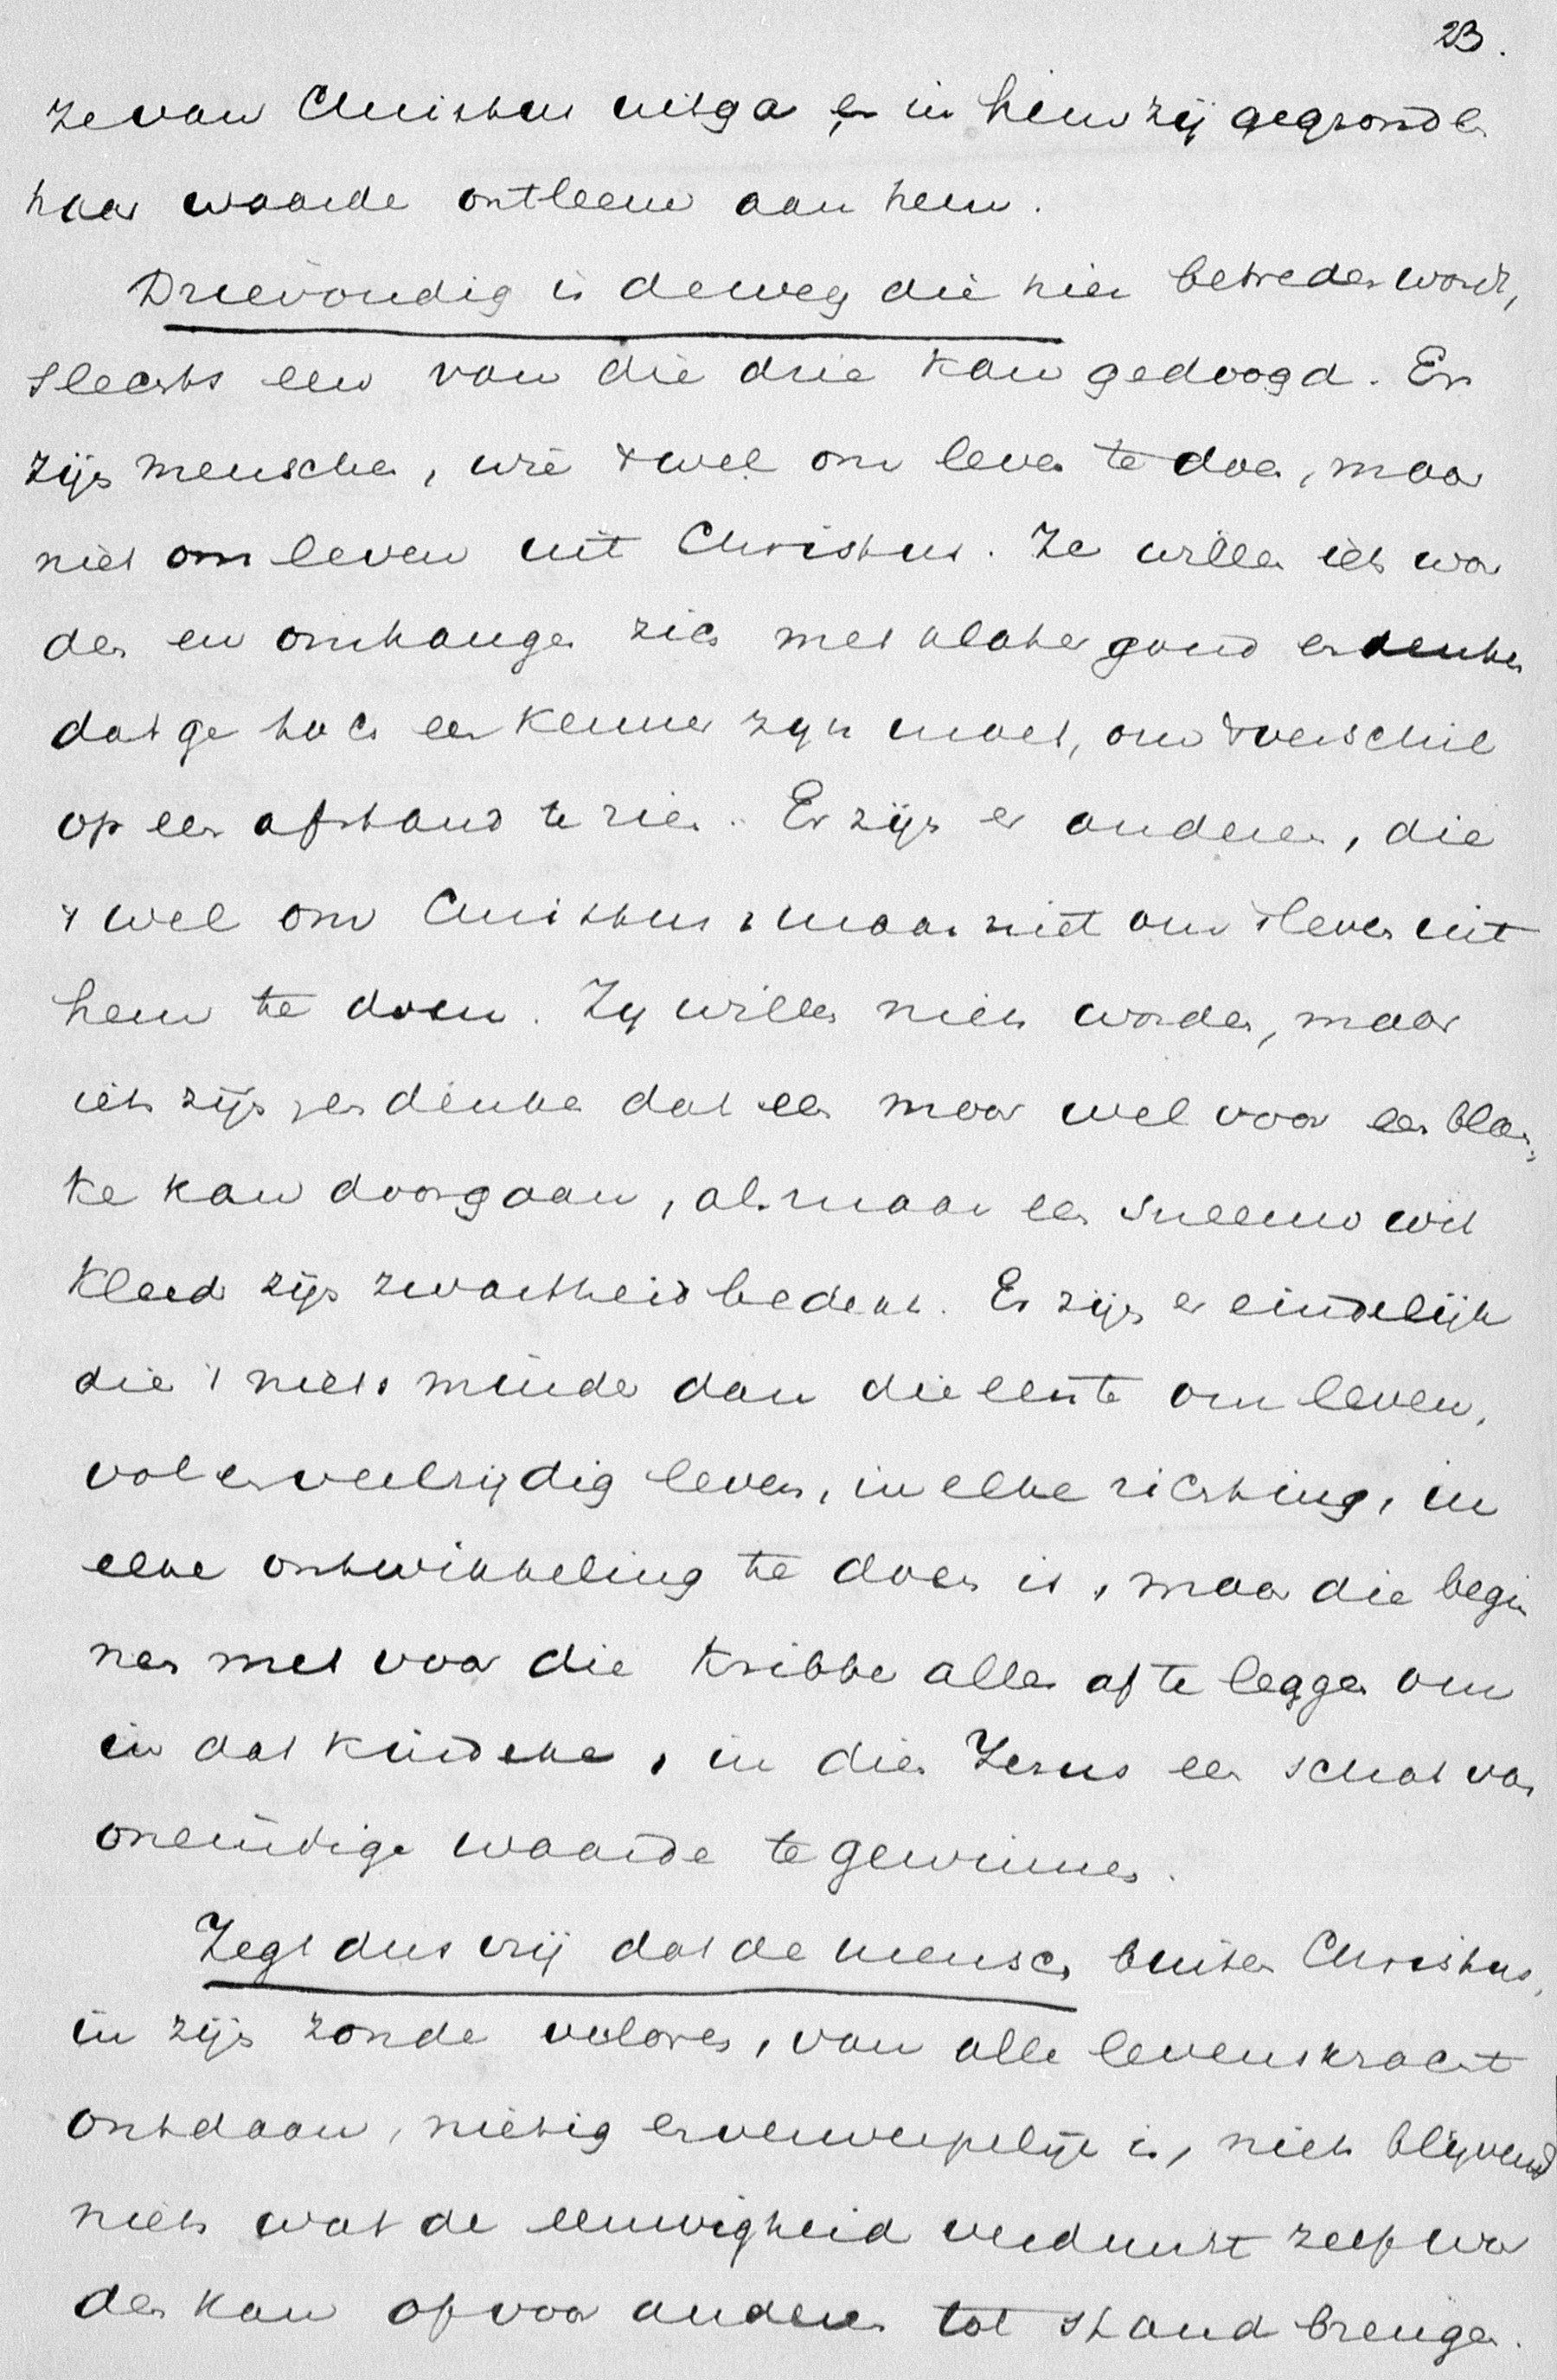 23.
ze van Christus uitga en in hem zij gegrond en
haar waarde ontleene aan hem.
Drievoudig is de weg die hier betreden wordt,
slechts een van die drie kan gedoogd. Er
zijn menschen, wie 't wel om leven te doen, maar
niet om leven uit Christus. Ze willen iets wor
den en omhangen zich met klatergoud en denken
dat ge toch een kenner zijn moet, om 't verschil
op een afstand te zien. Er zijn er anderen, die
't wel om Christus, maar niet om 't leven uit
hem te doen. Zij willen niets worden, maar
iets zijn en denken dat een moor wel voor een blan-
ke kan doorgaan, als maar een sneeuw wit
kleed zijn zwartheid bedekt. Er zijn er eindelijk
die 't niets minder dan die eerste om leven,
vol en veelzijdig leven, in elke richting, in
elke ontwikkeling te doen is, maar die begin
nen met voor die kribbe alles af te leggen om
in dat kindeke, in dien Jezus een schat van
oneindige waarde te gewinnen.
Zegt dus vrij dat de mensch buiten Christus,
in zijn zonde verloren, van alle levenskracht
ontdaan, nietig en verwerpelijk is, niets blijvend
niets wat de eeuwigheid verduurt zelf wor
den kan of voor anderen tot stand brengen.